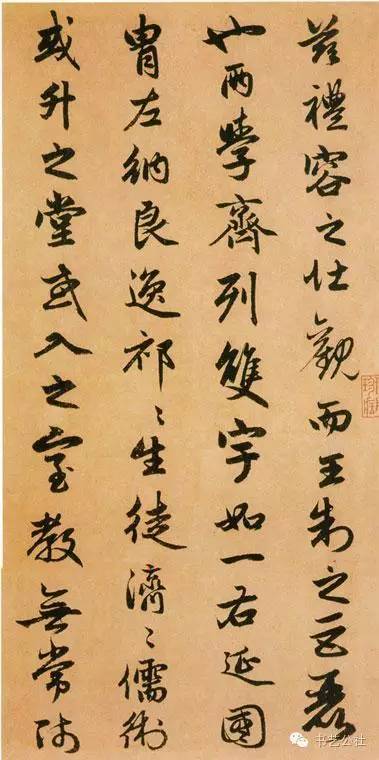 茲禮容之壯觀而王制之巨麗
也兩學齊列雙宇如一右延國
胄左納良逸祁〻生徒濟〻儒術
或升之堂或入之室教無常師
书艺公社